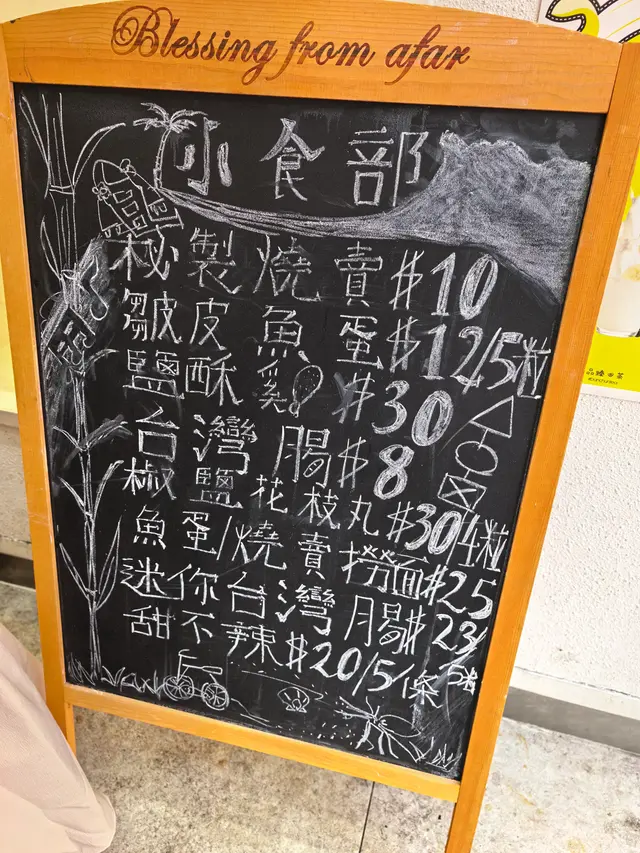 Blessing from afar
小食部
秘製燒賣 $10
皺皮魚蛋 $12/5粒
鹽酥雞 $30
台灣腸 $8
椒鹽花枝丸 $30/4粒
魚蛋/燒賣撈麵 $25
迷你台灣腸 $23/5粒
甜不辣 $20/5條